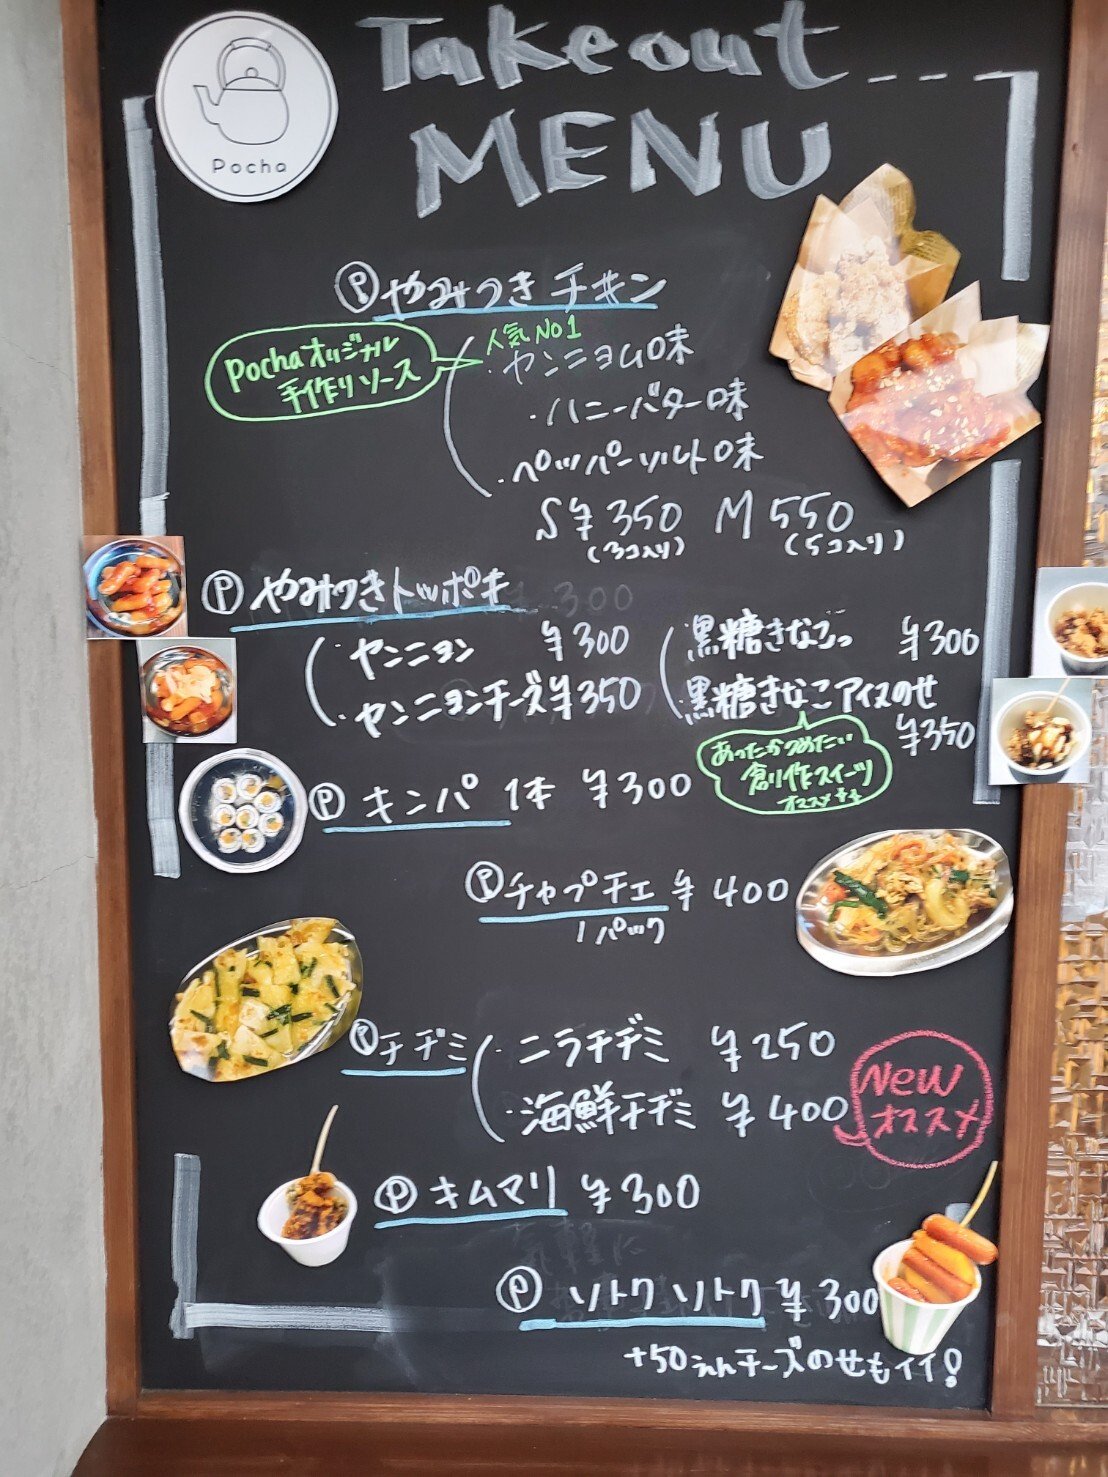 Pocha
Takeout
MENU
Ⓟやみつきチキン
Pochaオリジナル
手作りソース
人気No1
・ヤンニョム味
・ハニーバター味
・ペッパーソルト味
S¥350 M 550
(3コ入り) (5コ入り)
Ⓟやみつきトッポキ
・ヤンニョン ¥300
・ヤンニョンチーズ¥350
・黒糖きなこ ¥300
・黒糖きなこアイスのせ
¥350
あったかつめたい
創作スイーツ
オススメ
Ⓟキンパ 1本 ¥300
Ⓟチャプチェ ¥400
1パック
Ⓟチヂミ
・ニラチヂミ ¥250
・海鮮チヂミ ¥400
New
オススメ
Ⓟキムマリ ¥300
Ⓟソトクソトク ¥300
+50えんチーズのせもイイ!